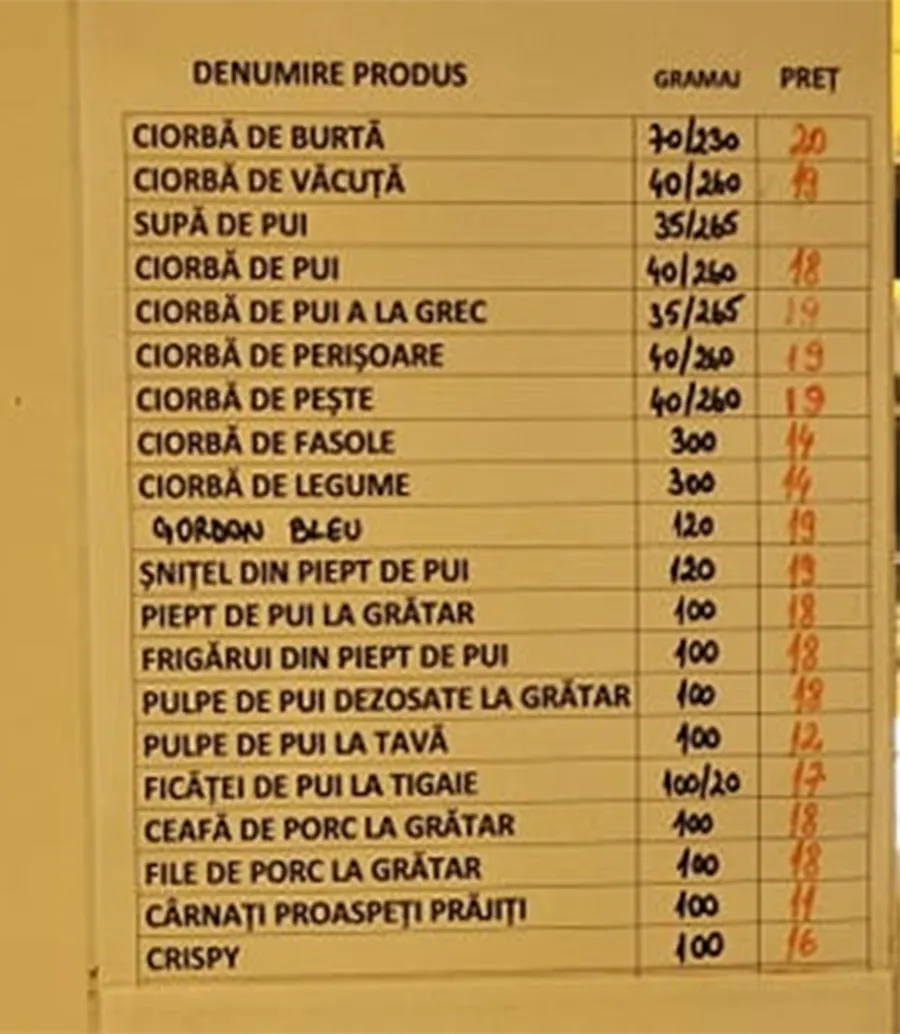 DENUMIRE PRODUS GRAMAJ PREȚ
CIORBĂ DE BURTĂ 70/230 20
CIORBĂ DE VĂCUȚĂ 40/260 19
SUPĂ DE PUI 35/265
CIORBĂ DE PUI 40/260 18
CIORBĂ DE PUI A LA GREC 35/265 19
CIORBĂ DE PERIȘOARE 40/260 19
CIORBĂ DE PEȘTE 40/260 19
CIORBĂ DE FASOLE 300 14
CIORBĂ DE LEGUME 300 14
GORDON BLEU 120 19
ȘNIȚEL DIN PIEPT DE PUI 120 19
PIEPT DE PUI LA GRĂTAR 100 18
FRIGĂRUI DIN PIEPT DE PUI 100 18
PULPE DE PUI DEZOSATE LA GRĂTAR 100 18
PULPE DE PUI LA TAVĂ 100 12
FICĂȚEI DE PUI LA TIGAIE 100/20 17
CEAFĂ DE PORC LA GRĂTAR 100 18
FILE DE PORC LA GRĂTAR 100 18
CÂRNAȚI PROASPEȚI PRĂJIȚI 100 11
CRISPY 100 16